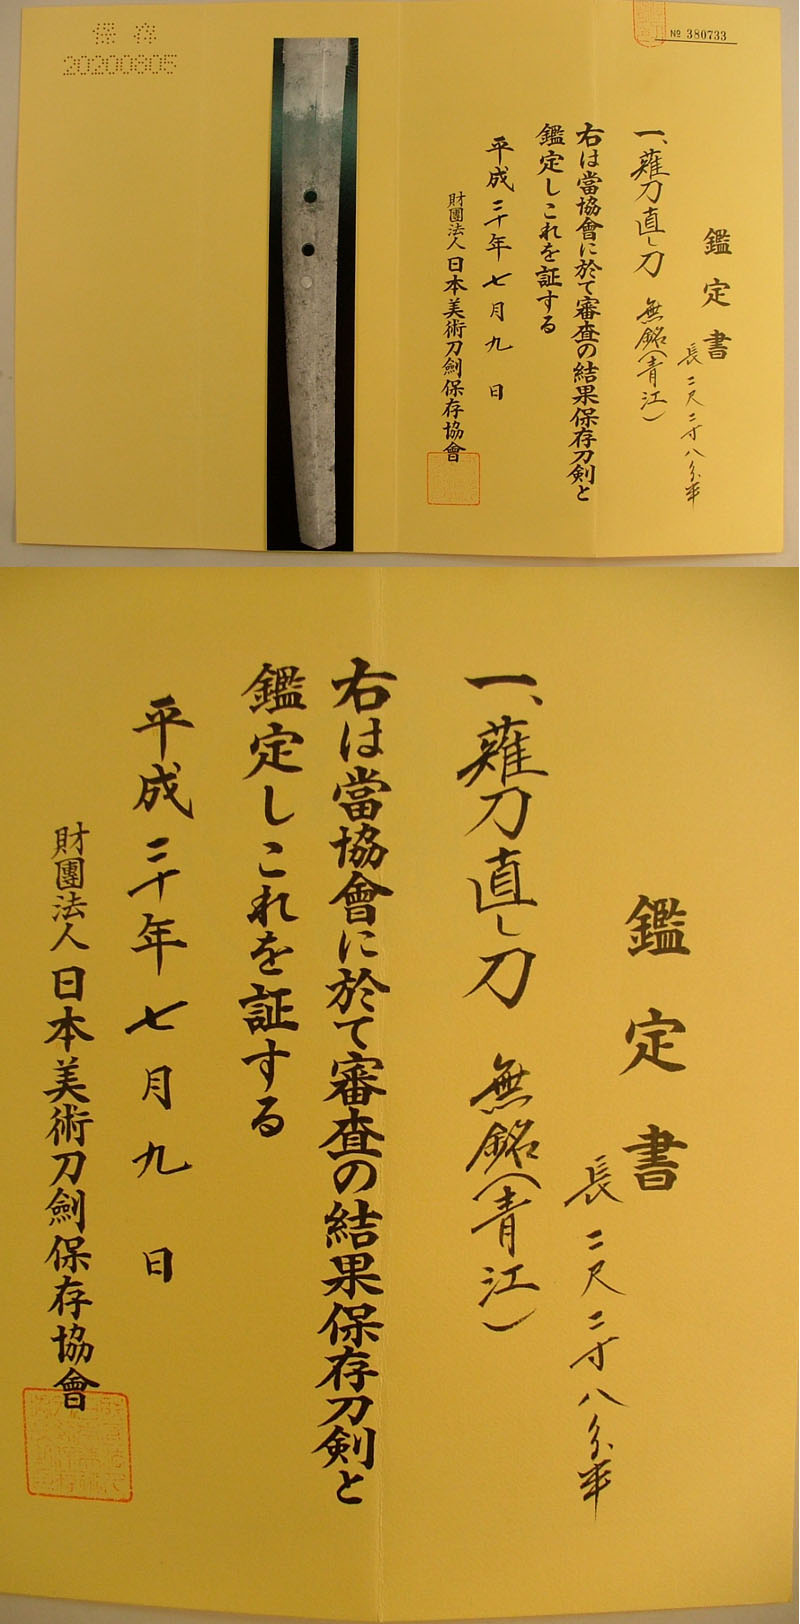 № 380733
鑑定書
長二尺二寸八分半
一、薙刀直し刀 無銘(青江)
右は當協會に於て審査の結果保存刀剣と
鑑定しこれを証する
平成二十年七月九日
財團法人日本美術刀劍保存協會
保存
20200805
鑑定書
長二尺二寸八分半
一、薙刀直し刀 無銘(青江)
右は當協會に於て審査の結果保存刀剣と
鑑定しこれを証する
平成二十年七月九日
財團法人日本美術刀劍保存協會